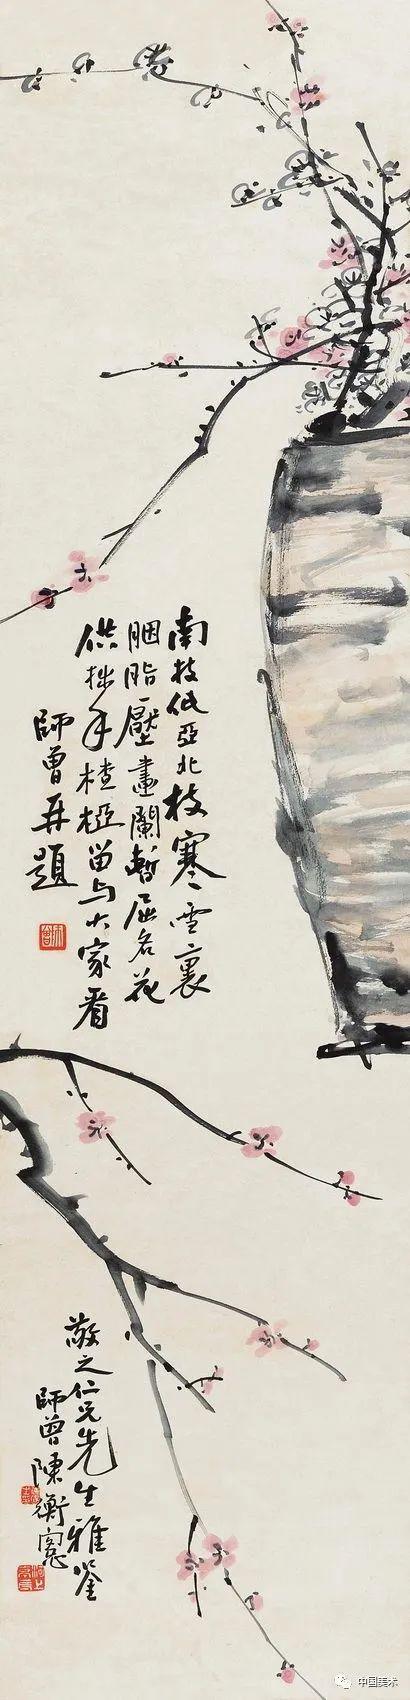 南枝低亞北枝寒雪裏
胭脂壓畫闌暫屈名花
供拙手楂椏留与大家看
師曾再題
敬之仁兄先生雅鉴
師曾陳衡愙
中国美术